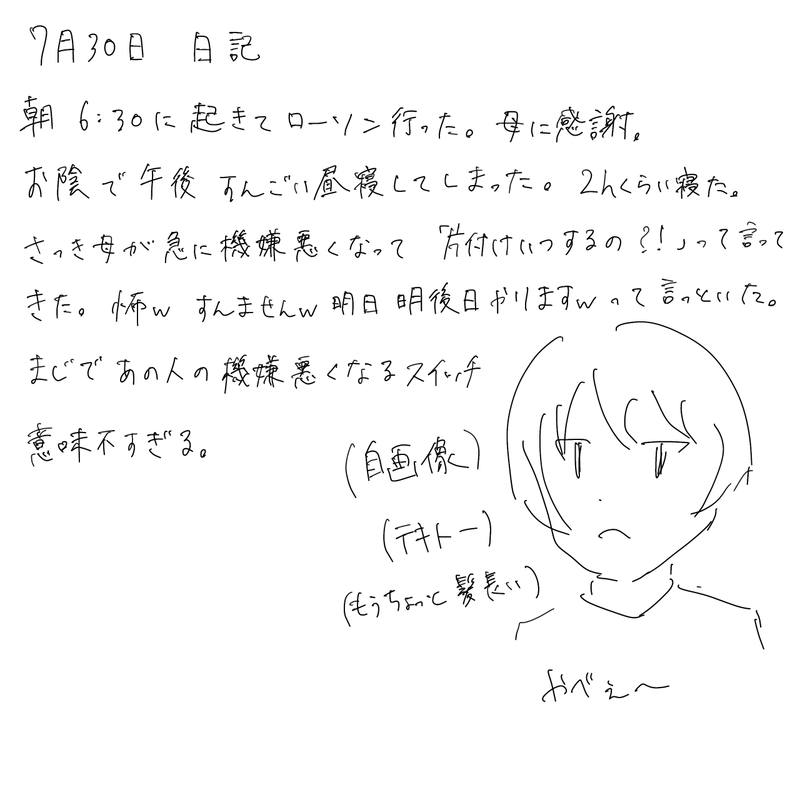 7月30日 日記
朝 6:30に起きてローソン行った。母に感謝。
お陰で午後 すんごい昼寝してしまった。2hくらい寝た。
さっき母が急に機嫌悪くなって「片付けいつするの?!」って言って
きた。怖w すんませんw 明日明後日かりますw って言っといた。
まじであの人の機嫌悪くなるスイッチ
意味不すぎる。
(自画像)
(テキトー)
(もうちょっと髪長い)
やべぇ〜